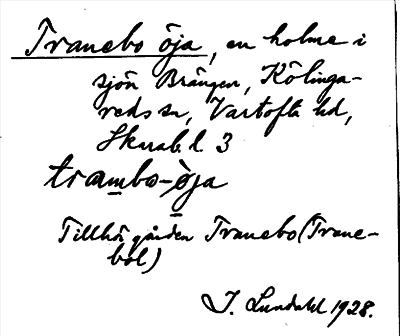 Tranebo öja, en holme i
sjön Brängen, Kölinga-
reds sn, Vartofta hd,
Skarab. l. 3
trambo-öja
Tillhör gården Tranebo (Trane-
bol)
J. Lundahl 1928.